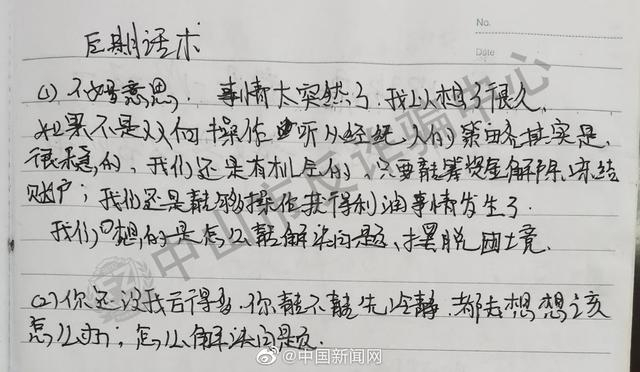 No.
Date
后期话术
(1) 不好意思. 事情太突然了, 我以想了很久.
如果不是双向操作 听从经纪人们的策略其实是
很稳的, 我们还是有机会的, 只要能筹资金解除冻结
账户; 我们还是能够操作获得利润事情发生了.
我们想的是怎么能解决问题、摆脱困境.
(2) 你还没我亏得多. 你能不能先冷静. 都去想想该
怎么办; 怎么解决问题.
中山市反诈骗中心
@中国新闻网